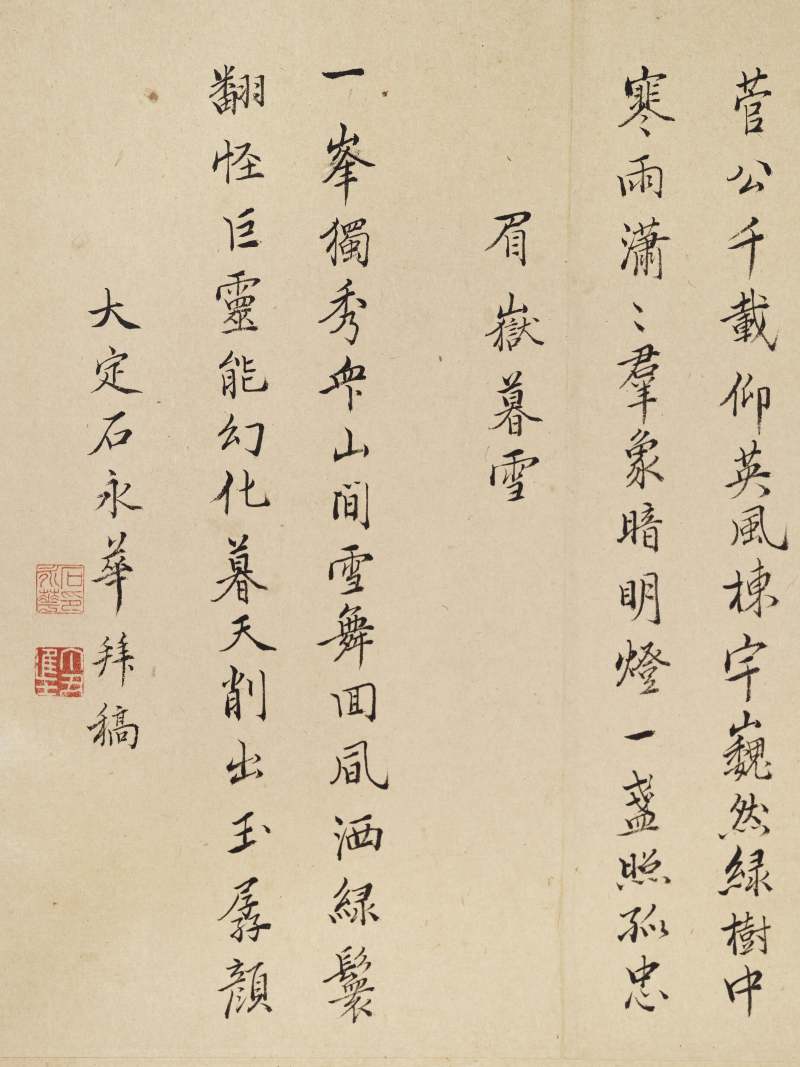 菅公千載仰英風棟宇巍然緑樹中
寒雨瀟〻羣象暗明燈一盞照孤忠
眉嶽暮雪
一峯獨秀衆山間雪舞回風洒緑鬟
翻怪巨靈能幻化暮天削出玉孱顔
大定石永華拜稿
石印永華